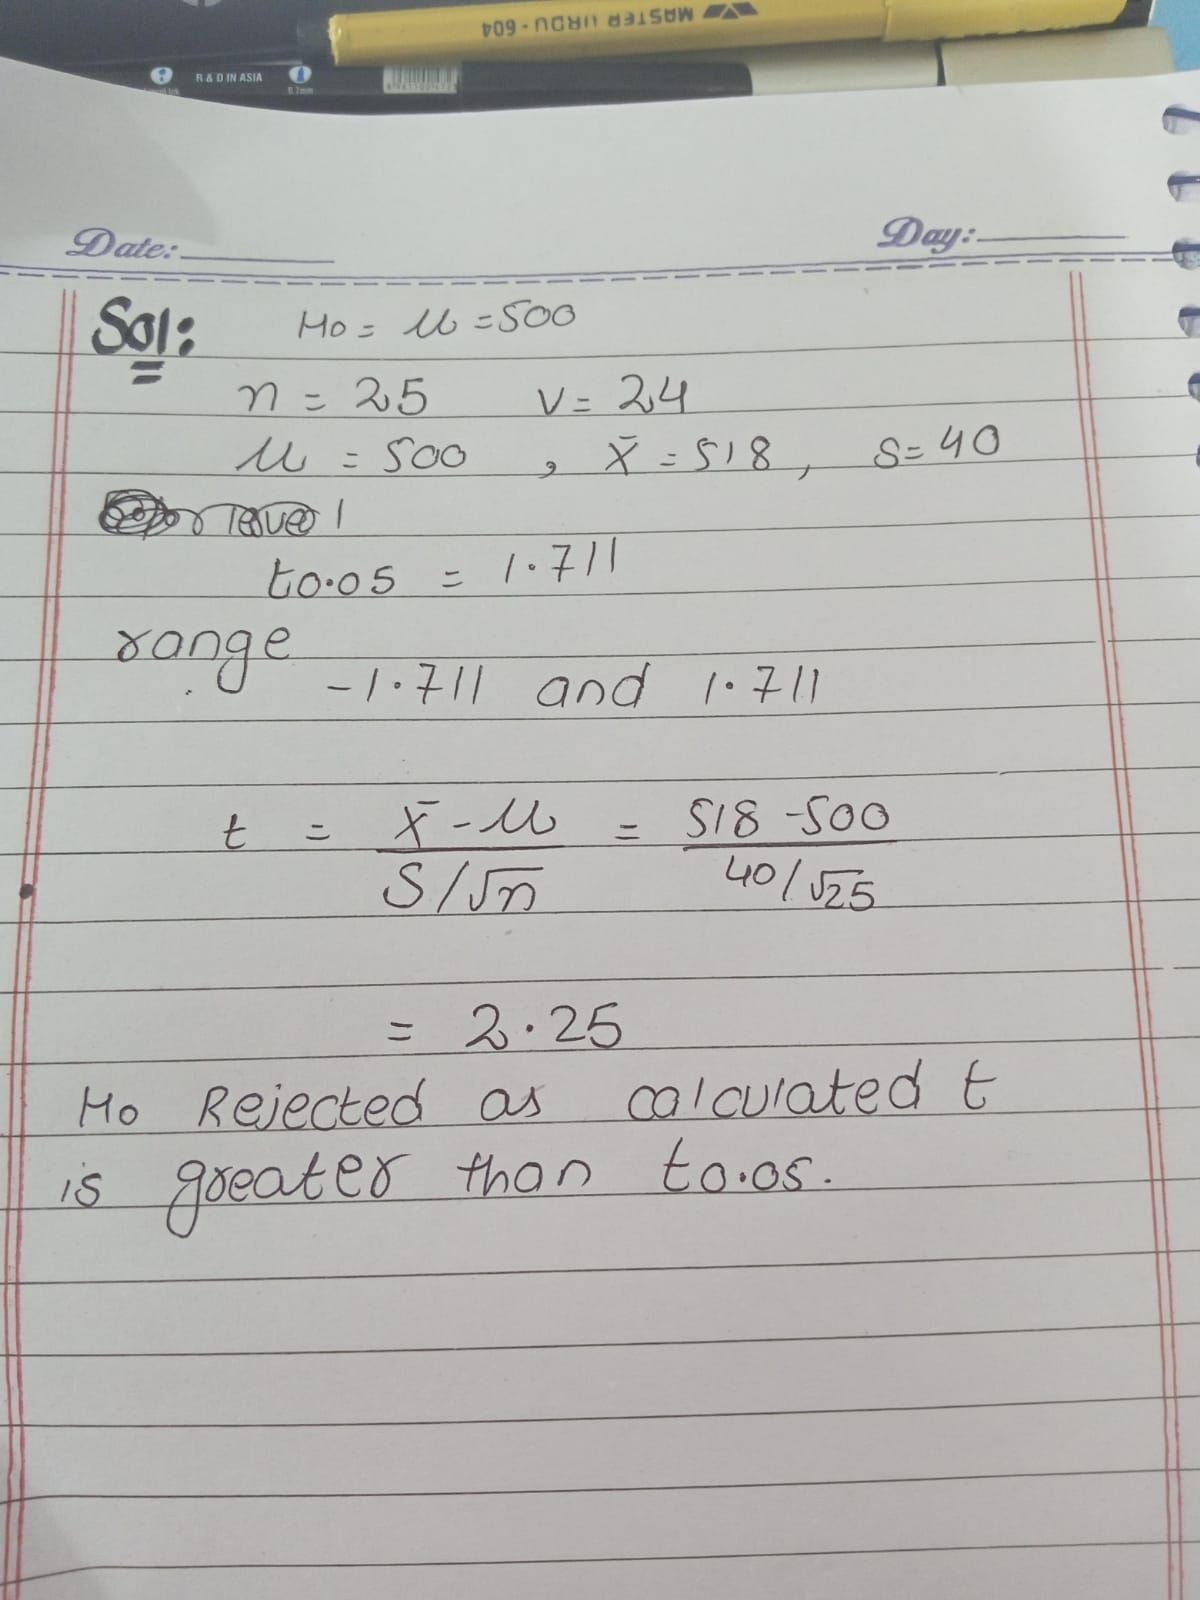 MASTER URDU-604
R & D IN ASIA
0.7mm
Date:
Day:
Sol: Ho = μ = 500
n = 25 v = 24
μ = 500 , x̄ = 518, S = 40
level
to.05 = 1.711
range
-1.711 and 1.711
t = x̄ - μ / S/√n = 518 - 500 / 40/√25
= 2.25
Ho Rejected as calculated t
is greater than to.05.